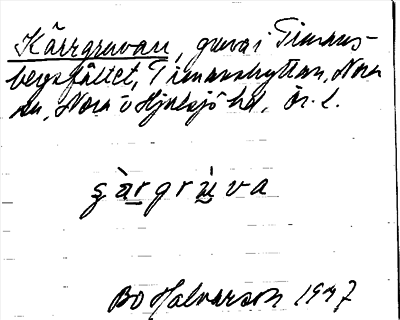 Kärrgruvan, gruva i Timans-
bergsfältet, Timanshyttan, Nora
sn, Nora o Hjulsjö hd, Ör. l.
s̨àrgrùva
Bo Halvarson 1947